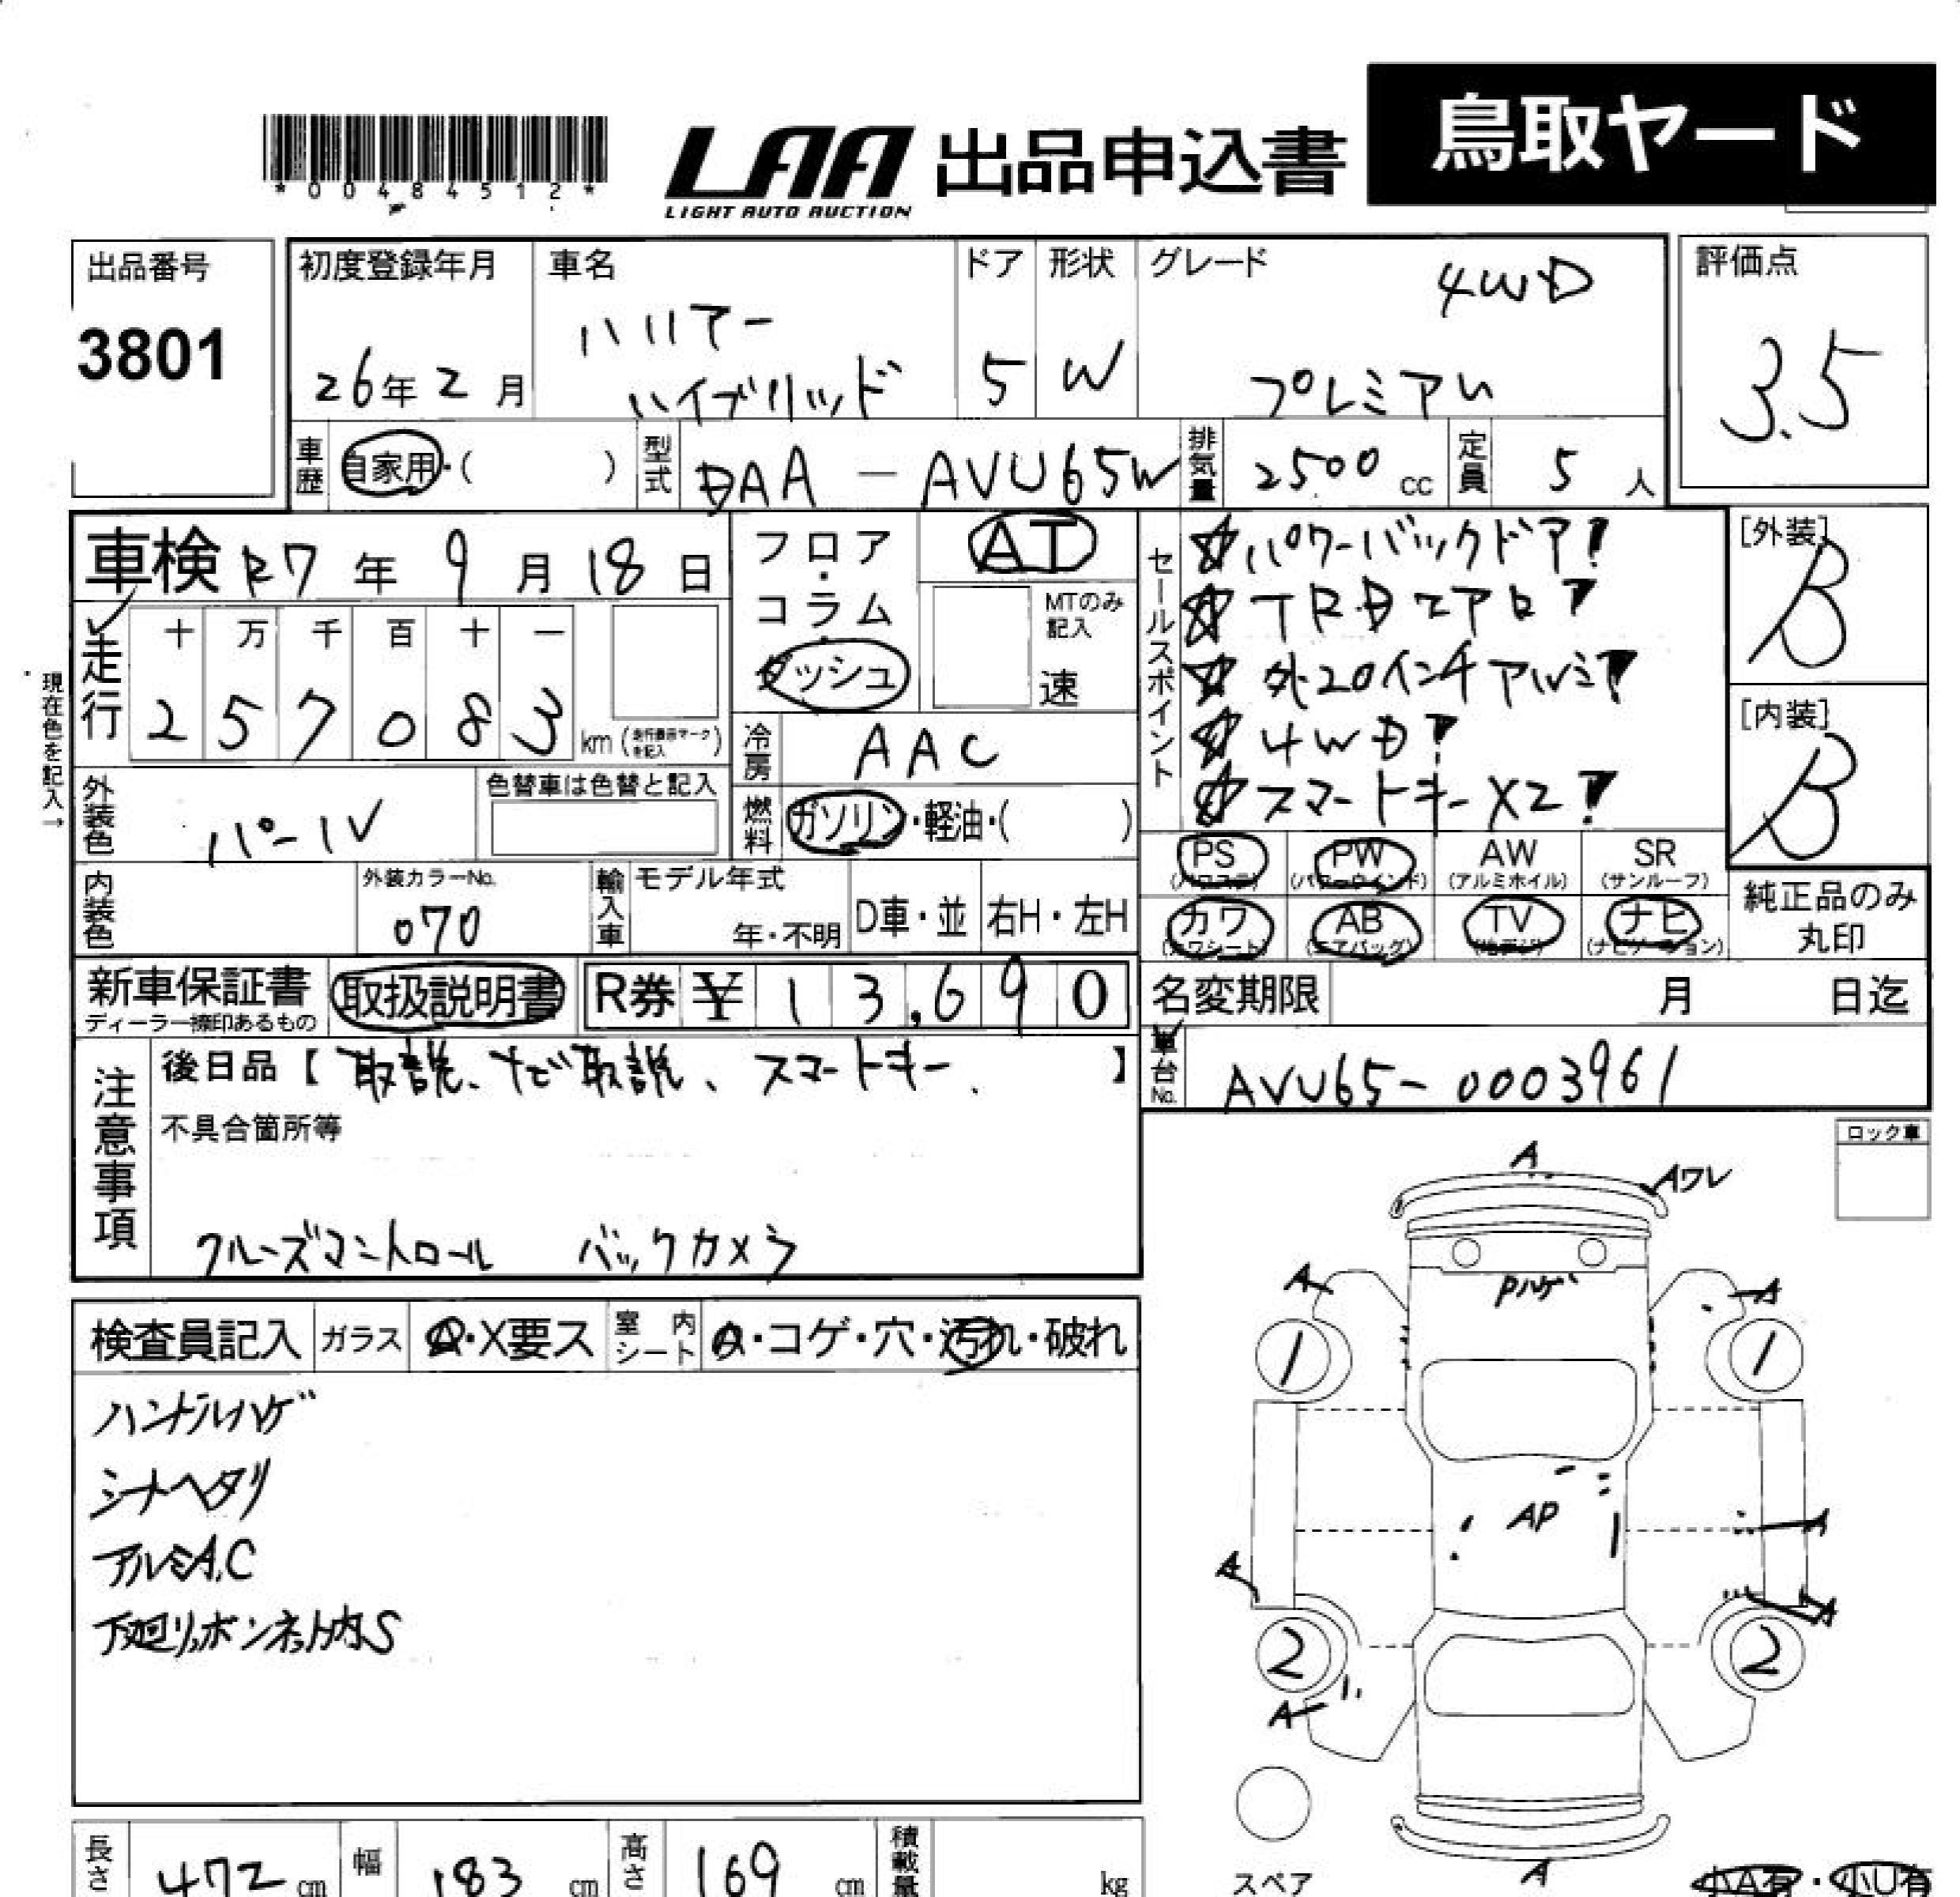 鳥取ヤード
*00484512*
LAA 出品申込書
LIGHT AUTO AUCTION
出品番号
3801
初度登録年月
26年2月
車名
ハリアー
ハイブリッド
ドア
5
形状
W
グレード
4WD
プレミアム
評価点
3.5
車歴
自家用・( )
型式
DAA - AVU65W
排気量
2500 cc
定員
5 人
車検 R7年 9月 18日
フロア・コラム・ダッシュ
AT
MTのみ記入
速
走行
十 万 千 百 十 一
2 5 7 0 8 3 km (走行表示マークを記入)
現在色を記入→
冷房
AAC
外装色
パール
色替車は色替と記入
燃料
ガソリン・軽油・( )
内装色
外装カラーNo.
070
輸入車
モデル年式
年・不明
D車・並
右H・左H
セールスポイント
☆パワーバックドア!
☆TRDエアロ!
☆外20インチアルミ!
☆4WD!
☆スマートキーX2!
[外装]
B
[内装]
B
PS (パワステ)
PW (パワーウインド)
AW (アルミホイル)
SR (サンルーフ)
カワ (カワシート)
AB (エアバッグ)
TV (地デジ)
ナビ (ナビゲーション)
純正品のみ丸印
新車保証書
ディーラー捺印あるもの
取扱説明書
R券 ¥ 13,690
名変期限 月 日迄
車台No.
AVU65-0003961
注意事項
後日品【 取説、ナビ取説、スマートキー. 】
不具合箇所等
クルーズコントロール バックカメラ
ロック車
検査員記入
ガラス
A・X要ス
室内シート
A・コゲ・穴・汚れ・破れ
ハンドルハゲ
シートヘタリ
アルミA,C
下廻り,ボンネット内S
A
Aワレ
Pハゲ
A
A
1
1
AP
A
A
A
2
2
A
A
スペア
小A有・小U有
長さ
472 cm
幅
183 cm
高さ
169 cm
積載量
kg